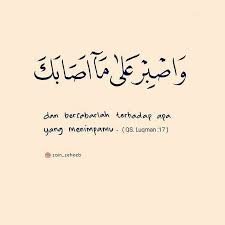 وَاصْبِرْ عَلَىٰ مَآ اَصَابَكَ
dan bersabarlah terhadap apa
yang menimpamu. (QS. Luqman :17)
zain_zeheeb